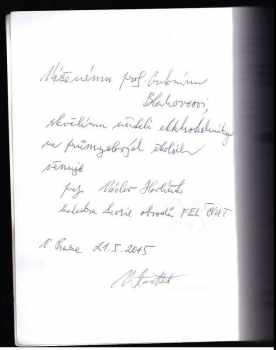 Váženému prof. Lubomíru
Blahovcovi,
skvělému učiteli elektrotechniky
na průmyslových školách
věnuje
Václav Havlíček
katedra teorie obvodů FEL ČVUT
V Praze 21.5.2015